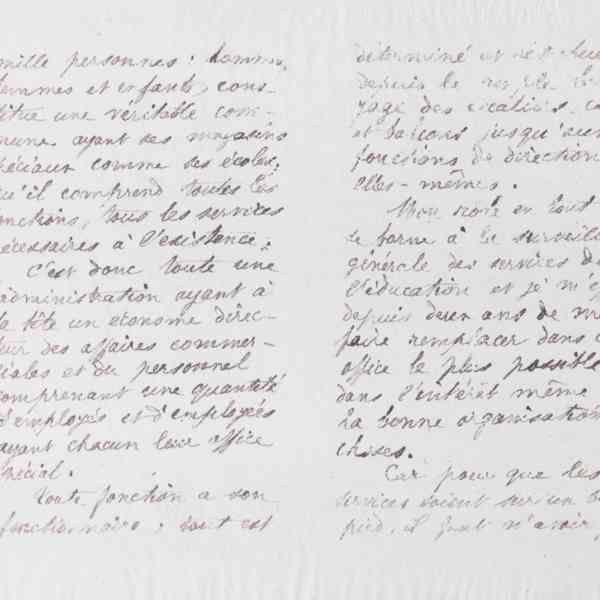 mille personnes : hommes,
femmes et enfants, cons-
titue une véritable com-
mune ayant ses magasins
spéciaux comme ses écoles,
qu'il comprend toutes les
fonctions, tous les services
nécessaires à l'existence.
C'est donc toute une
administration ayant à
la tête un econome direc-
teur des affaires commer-
ciales et du personnel
comprenant une quantité
d'employés et d'employées
ayant chacun leur office
spécial.
Toute fonction a son
fonctionnaire ; tout est
déterminé et
depuis le
yage des escaliers,
et balcons jusqu'aux
fonctions de direction
elles-mêmes.
Mon rôle en tout
se borne à la surveil
générale des services de
l'éducation et je m'ef
depuis deux ans de me
faire remplacer dans c
office le plus possible
dans l'intérêt même
la bonne organisation
choses.
Car pour que les
services soient sur un b
pied, il faut n'avoir